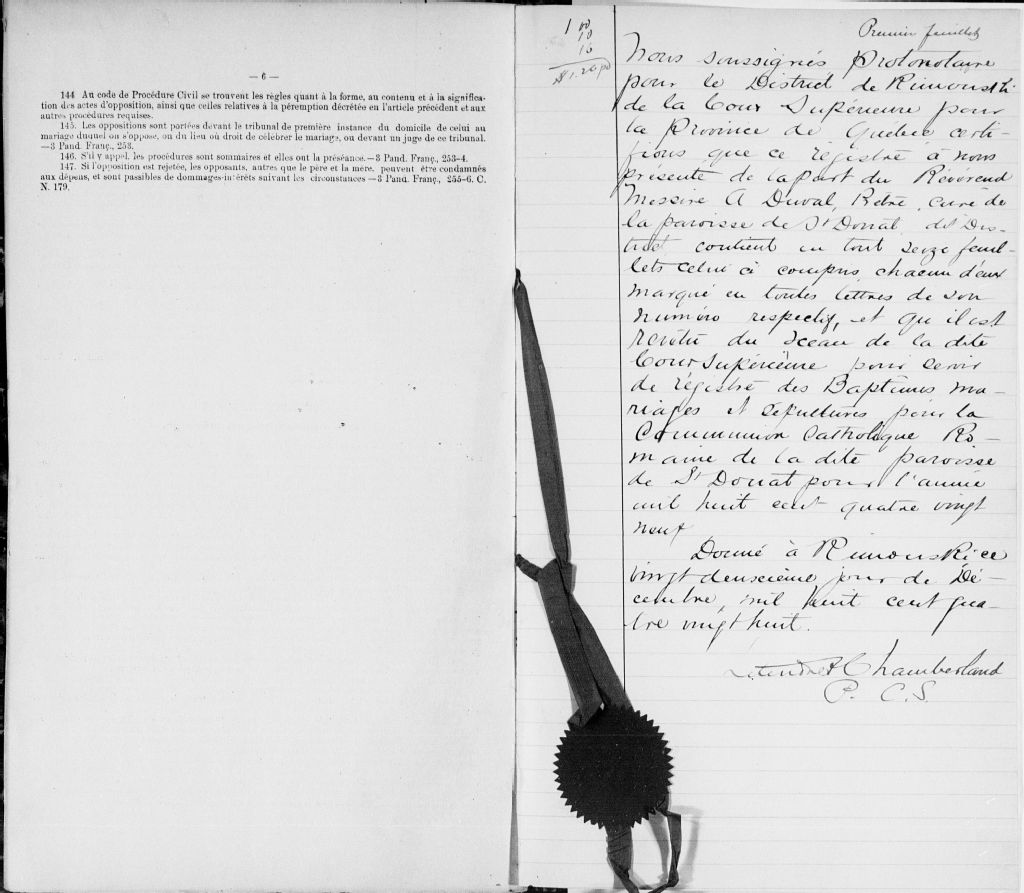 — 6 —
144 Au code de Procédure Civil se trouvent les règles quant à la forme, au contenu et à la significa-
tion des actes d'opposition, ainsi que celles relatives à la péremption décrétée en l'article précédent et aux
autres procédures requises.
145. Les oppositions sont portées devant le tribunal de première instance du domicile de celui au
mariage duquel on s'oppose, ou du lieu où droit de célébrer le mariage, ou devant un juge de ce tribunal.
—3 Pand. Franç., 253.
146. S'il y appel, les procédures sont sommaires et elles ont la préséance.—3 Pand. Franç., 253-4.
147. Si l'opposition est rejetée, les opposants, autres que le père et la mère, peuvent être condamnés
aux dépens, et sont passibles de dommages-intérêts suivant les circonstances —3 Pand. Franç., 255-6. C.
N. 179.
1 00
10
10
$1.20
Premier feuillet
Nous soussignés Protonotaire
pour le District de Rimouski
de la Cour Supérieure pour
la Province de Québec certi-
fions que ce régistre à nous
présenté de la part du Révérend
Messire A Duval, Ptre, curé de
la paroisse de St Donat, dit Dis-
trict contient en tout seize feuil-
lets celui ci compris, chacun d'eux
marqué en toutes lettres de son
numéro respectif, et qu'il est
revêtu du sceau de la dite
Cour Supérieure pour servir
de régistre des Baptêmes ma-
riages et sépultures pour la
Communion Catholique Ro-
maine de la dite paroisse
de St Donat pour l'année
mil huit cent quatre vingt
neuf
Donné à Rimouski ce
vingt deuxième jour de Dé-
cembre, mil huit cent qua-
tre vingt huit.
Chamberland
P. C. S.